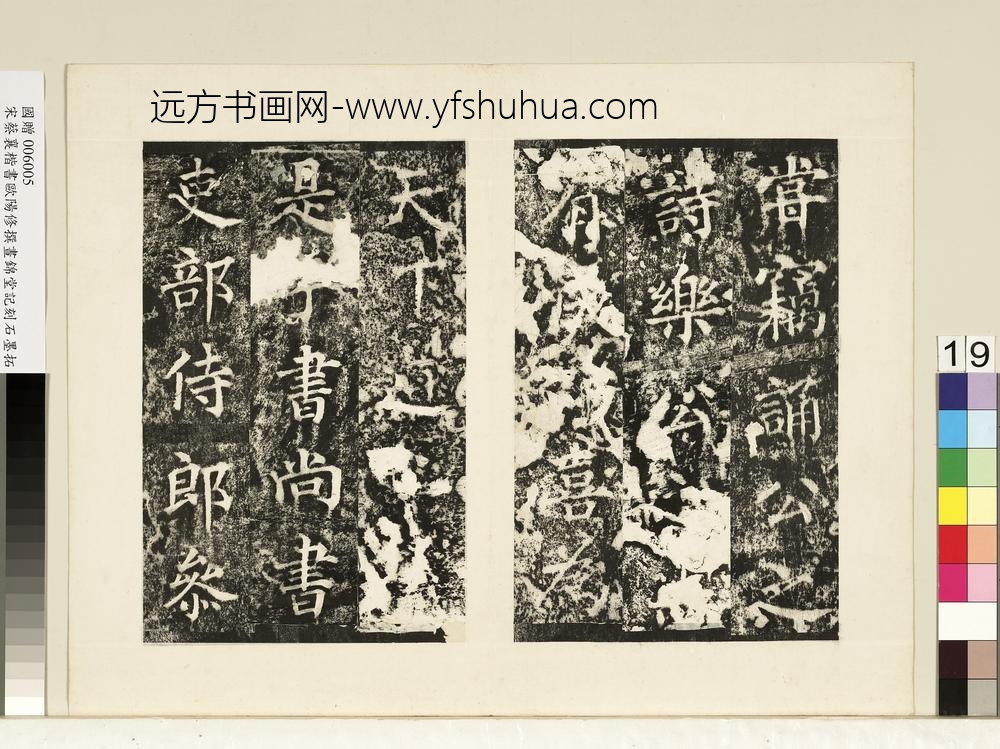 远方书画网-www.yfshuhua.com
國贈 006005
宋蔡襄楷書歐陽修撰晝錦堂記刻石墨拓
嘗竊誦公之
詩樂公
有成喜為
天下道
是乎書尚書
吏部侍郎參
19